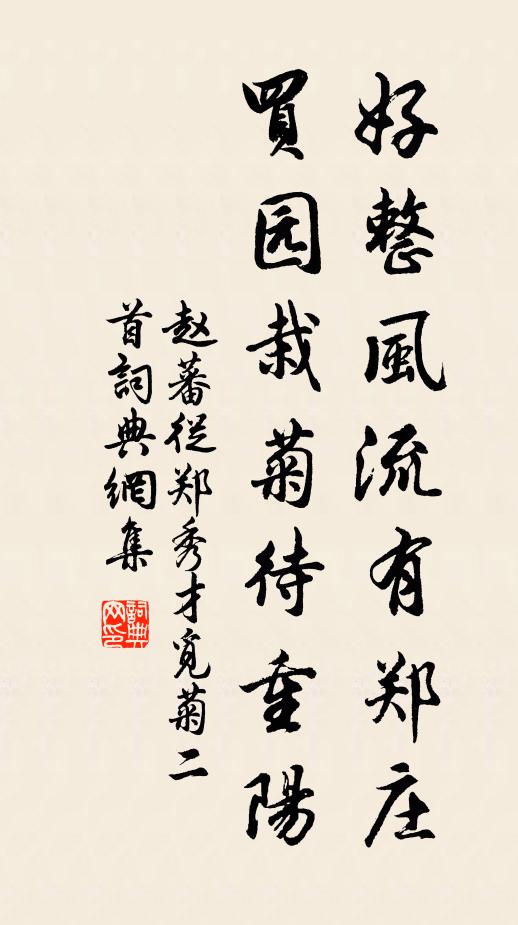 好整風流有郑庄
買园栽菊待重陽
赵蕃從郑秀才覓菊二
首詞典網集
詞典网印